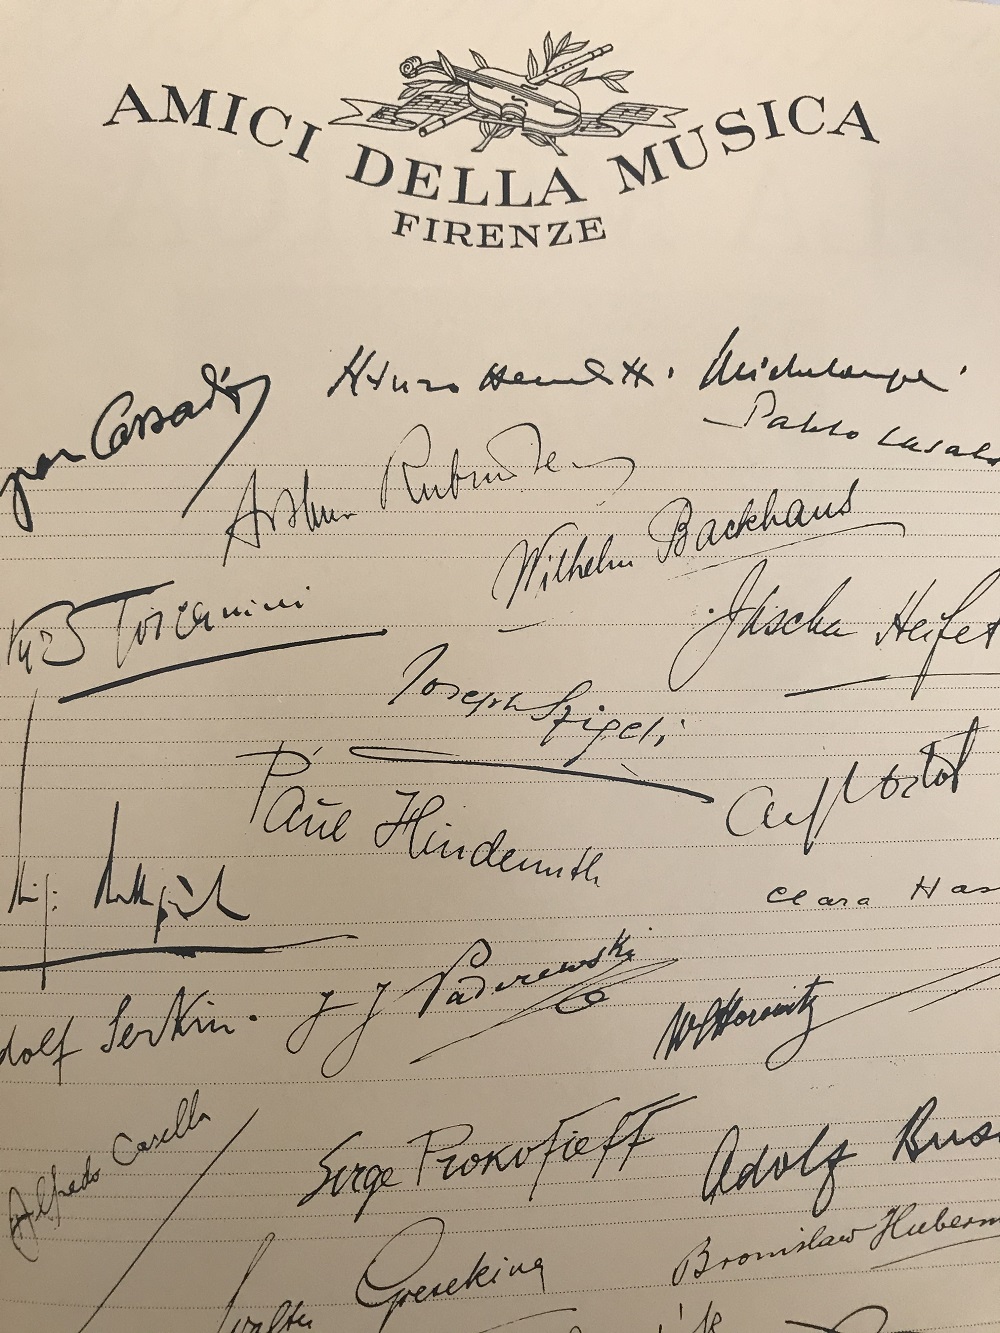 AMICI DELLA MUSICA
FIRENZE
Cassadó
Michelangeli
Pablo Casals
Arthur Rubinstein
Wilhelm Backhaus
Toscanini
Jascha Heifet
Joseph Szigeti
Paul Hindemith
Clara Has
dolf Serkin.
J J Paderewski
Horowitz
Alfredo Casella
Serge Prokofieff
Adolf Bus
Walter Gieseking
Bronislaw Huberm